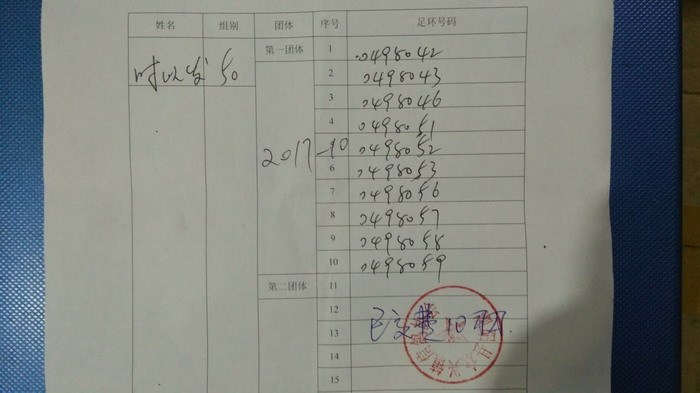 姓名 组别 团体 序号 足环号码
第一团体 1 0498042
时以发 50 2 0498043
3 0498046
4 0498051
2017-10 0498052
6 0498053
7 0498056
8 0498057
9 0498058
10 0498059
第二团体 11
12
已交费10羽.
13
14
15